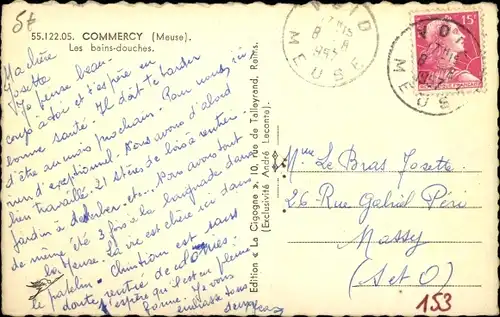 5t
55.122.05. COMMERCY (Meuse).
Les bains-douches.
Ma chère
Josette
Je pense beau-
coup à toi et t'espère en
bonne santé. Il doit te tarder
d'être au mois prochain. Pour nous ici
rien d'exceptionnel. Nous avons d'abord
bien travaillé. 21 stères de bois à rentrer
jardin à etc... Nous avons tout
de même été 3 fois à la baignade dans
la Meuse. La vie est chère ici dans
le patelin. Christian est sans
doute rentré de colonies.
J'espère qu'il est en pleine
forme. Je vous
embrasse tous
Edition « La Cigogne », 10, rue de Talleyrand, Reims.
(Exclusivité André Leconte).
VOID
8 -8
1957
MEUSE
15F
VOID
MEUSE
Mme Le Bras Josette
26 Rue Gabriel Péri
Massy
(S et O)
153